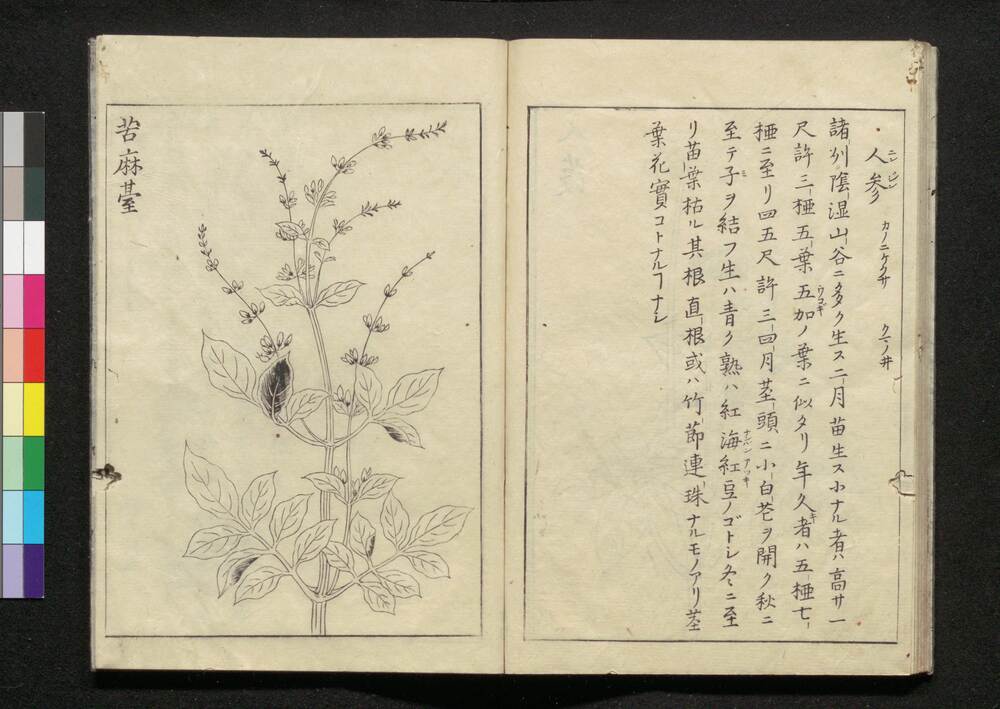 人参 ニンジン カノニケクサ クマノヰ
諸州陰湿山谷ニ多ク生ス二月苗生ス小ナル者ハ高サ一
尺許三椏五葉五加ウコギノ葉ニ似タリ年久キ者ハ五椏七
椏ニ至リ四五尺許三四月茎頭ニ小白花ヲ開ク秋ニ
至テ子ミヲ結フ生ハ青ク熟ハ紅海紅豆ナンバンアツキノゴトシ冬ニ至
リ苗葉枯ル其根直根或ハ竹節連珠ナルモノアリ茎
葉花實コトナルヿナシ
苦麻臺